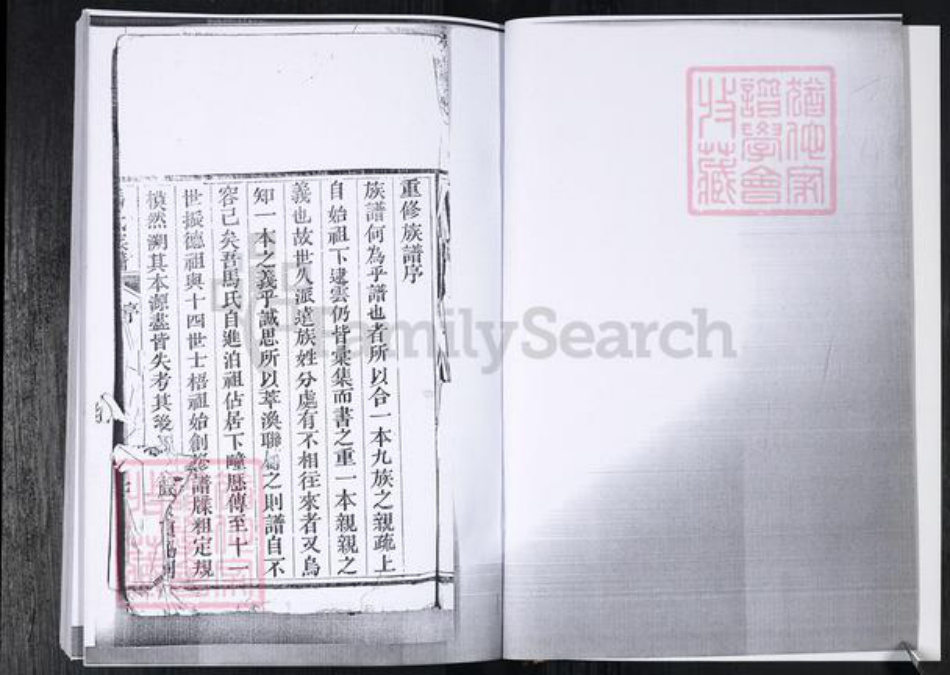 重修族譜序
族譜何為乎譜也者所以合一本九族之親疏上
自始祖下逮雲仍皆彙集而書之重一本親親之
義也故世久派遠族姓分處有不相往來者又烏
知一本之義乎誠思所以萃渙聯屬之則譜自不
容已矣吾馬氏自進泊祖佔居下疃歷傳至十一
世振德祖與十四世士梧祖始創修譜牒粗定規
模然溯其本源盡皆失考其後
氏族譜
序
猶他家
譜學會
收藏
FamilySearch